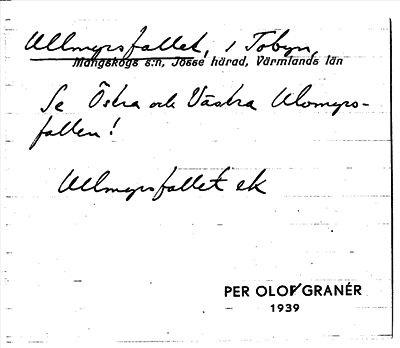 Ullmyrsfallet, i Tobyn,
Mangskogs s:n, Jösse härad, Värmlands län
Se Östra och Västra Ulvmyrs-
fallen!
Ullmyrsfallet ek
PER OLOF GRANÉR
1939